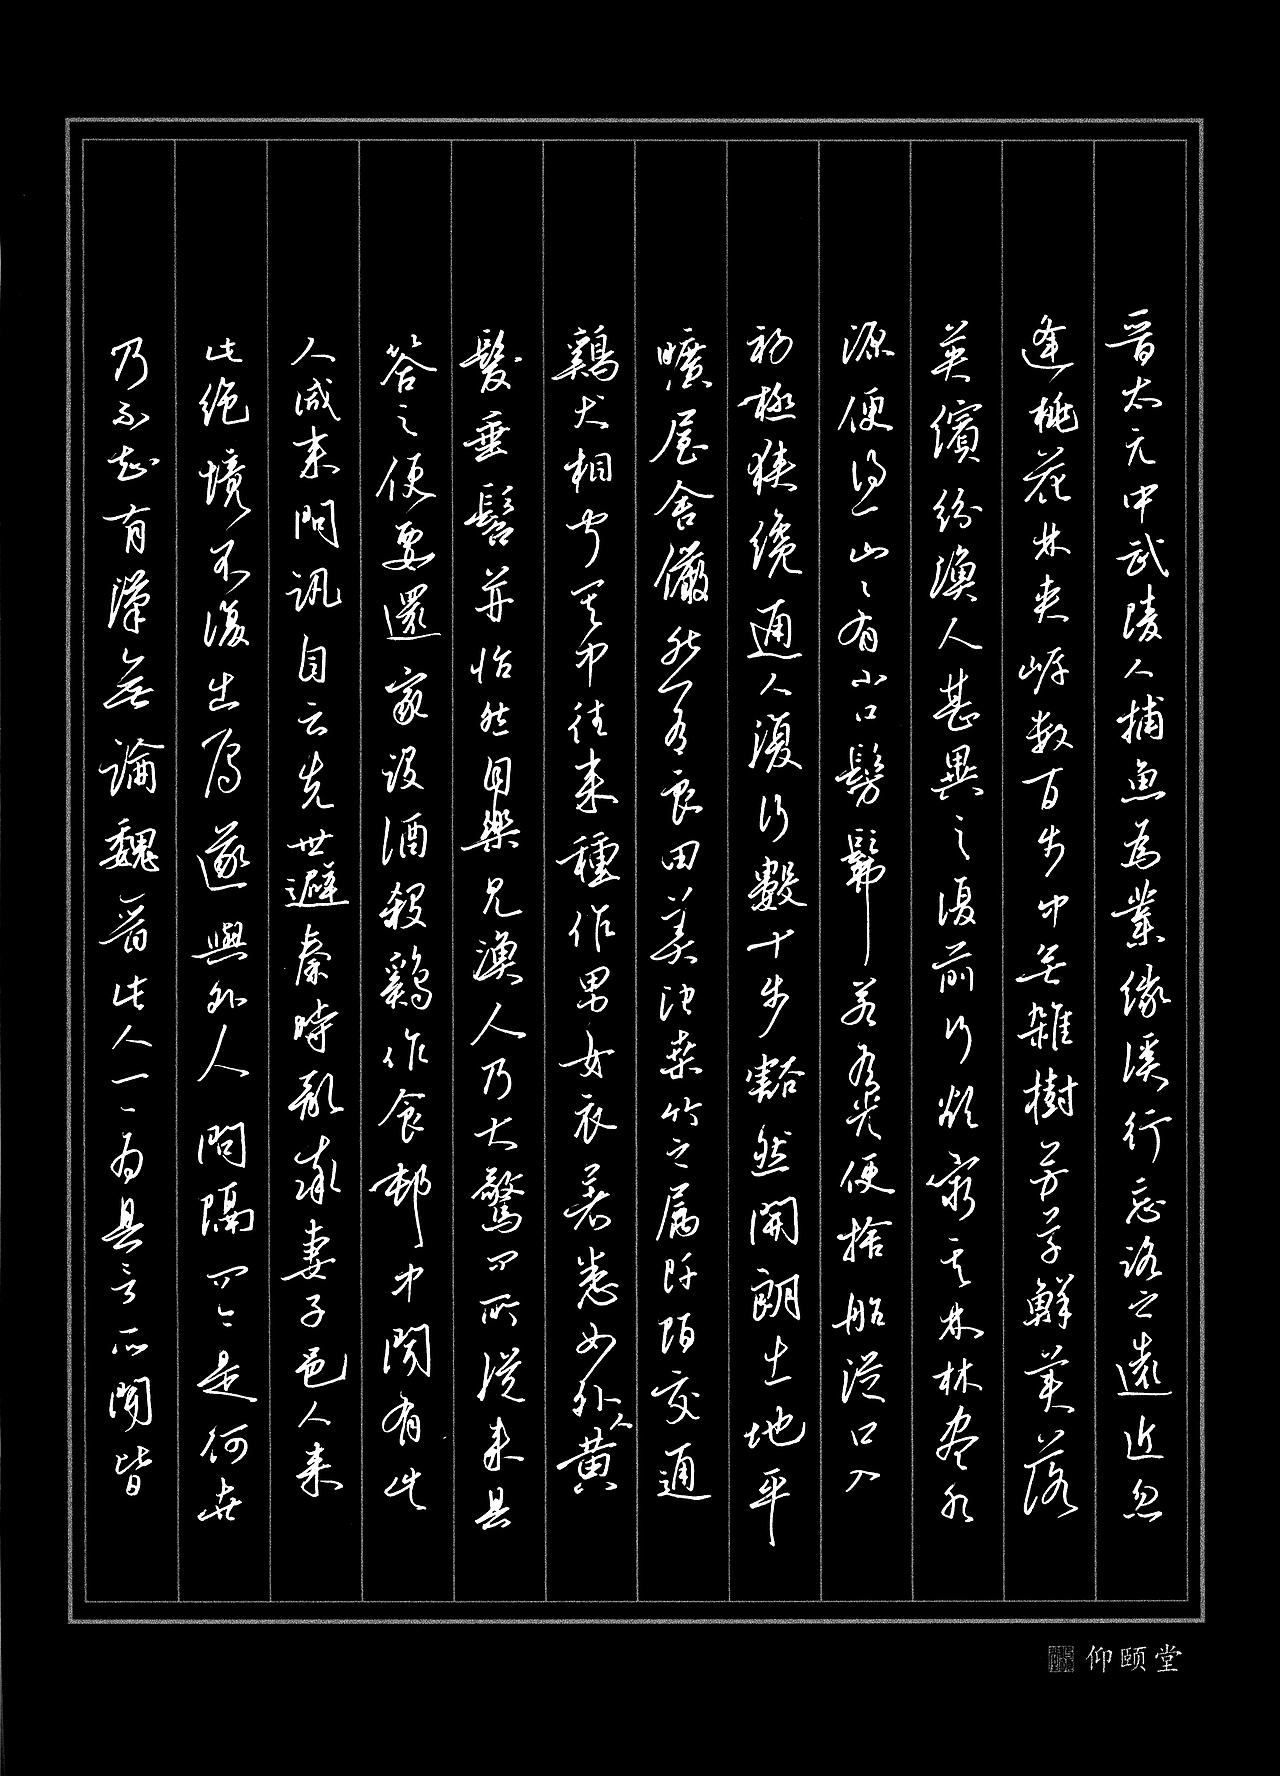 晉太元中武陵人捕魚為業緣溪行忘路之遠近忽
逢桃花林夾岸数百步中無雜樹芳草鮮美落
英繽紛漁人甚異之復前行欲窮其林林盡水
源便得一山〻有小口髣髴若有光便捨船從口入
初極狹纔通人復行數十步豁然開朗土地平
曠屋舍儼然有良田美池桑竹之屬阡陌交通
鷄犬相聞其中往来種作男女衣著悉如外人黃
髮垂髫并怡然自樂見漁人乃大驚問所從来具
答之便要還家設酒殺鷄作食邨中聞有此
人咸来問訊自云先世避秦時亂率妻子邑人来
此絶境不復出焉遂與外人間隔問今是何世
乃不知有漢無論魏晉此人一一為具言所聞皆
仰颐堂